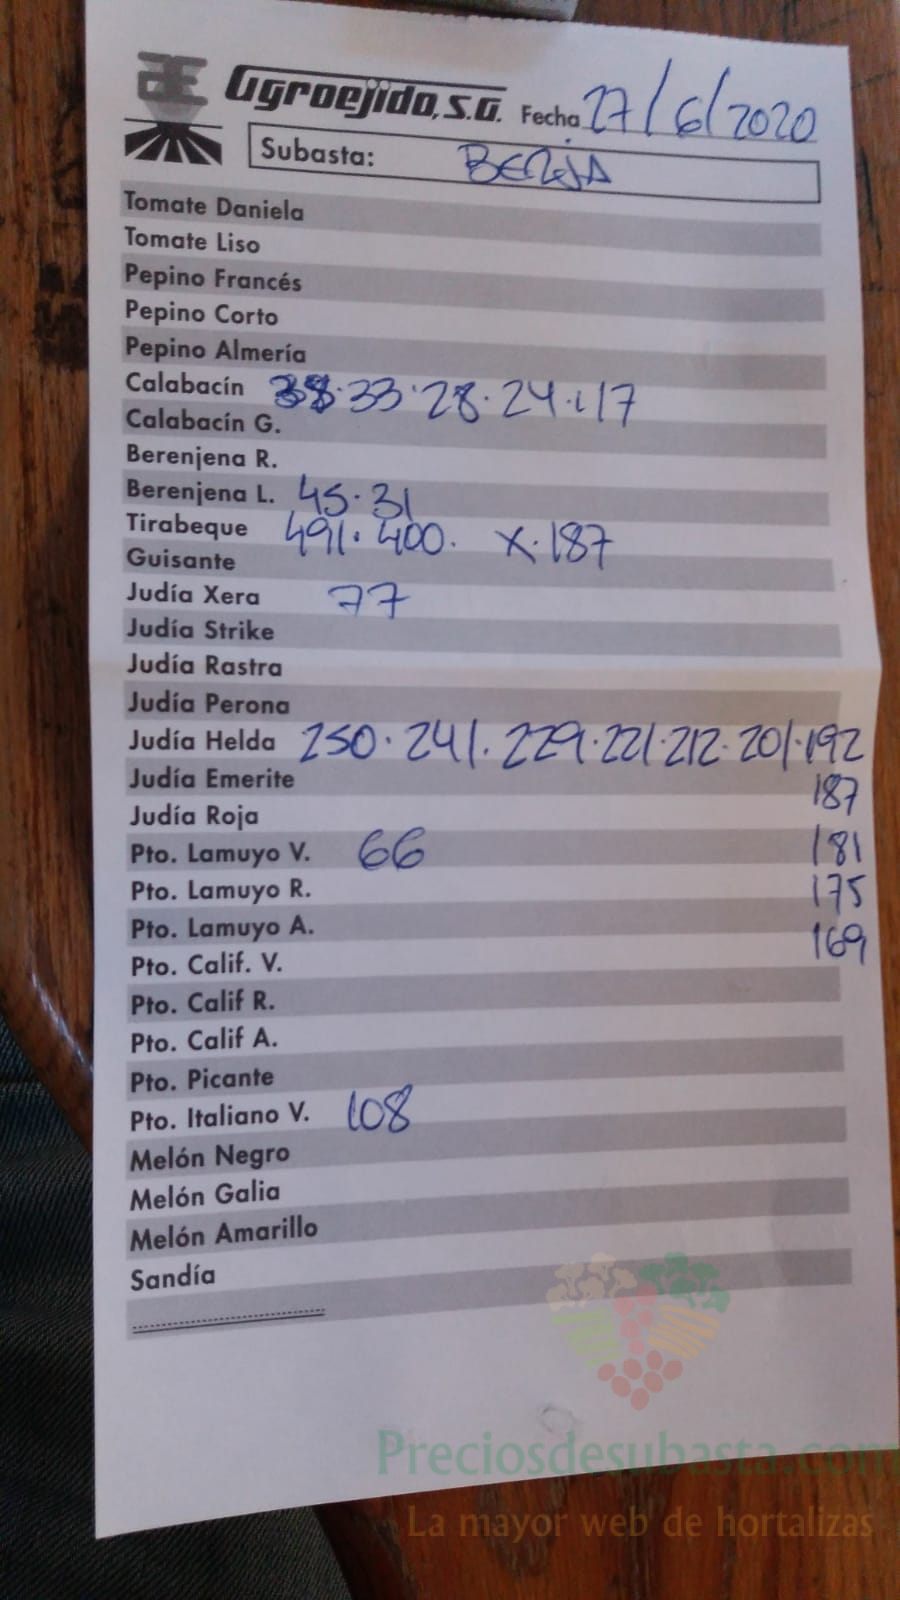 AE Agroejido, S.A. Fecha 27/6/2020
Subasta: BERJA
Tomate Daniela
Tomate Liso
Pepino Francés
Pepino Corto
Pepino Almería
Calabacín 33·28·24·17
Calabacín G.
Berenjena R.
Berenjena L. 45·31
Tirabeque 491·400· X·187
Guisante
Judía Xera 77
Judía Strike
Judía Rastra
Judía Perona
Judía Helda 250·241·229·221·212·201·192
187
181
175
169
Judía Emerite
Judía Roja
Pto. Lamuyo V. 66
Pto. Lamuyo R.
Pto. Lamuyo A.
Pto. Calif. V.
Pto. Calif R.
Pto. Calif A.
Pto. Picante
Pto. Italiano V. 108
Melón Negro
Melón Galia
Melón Amarillo
Sandía
Preciosdesubasta.com
La mayor web de hortalizas